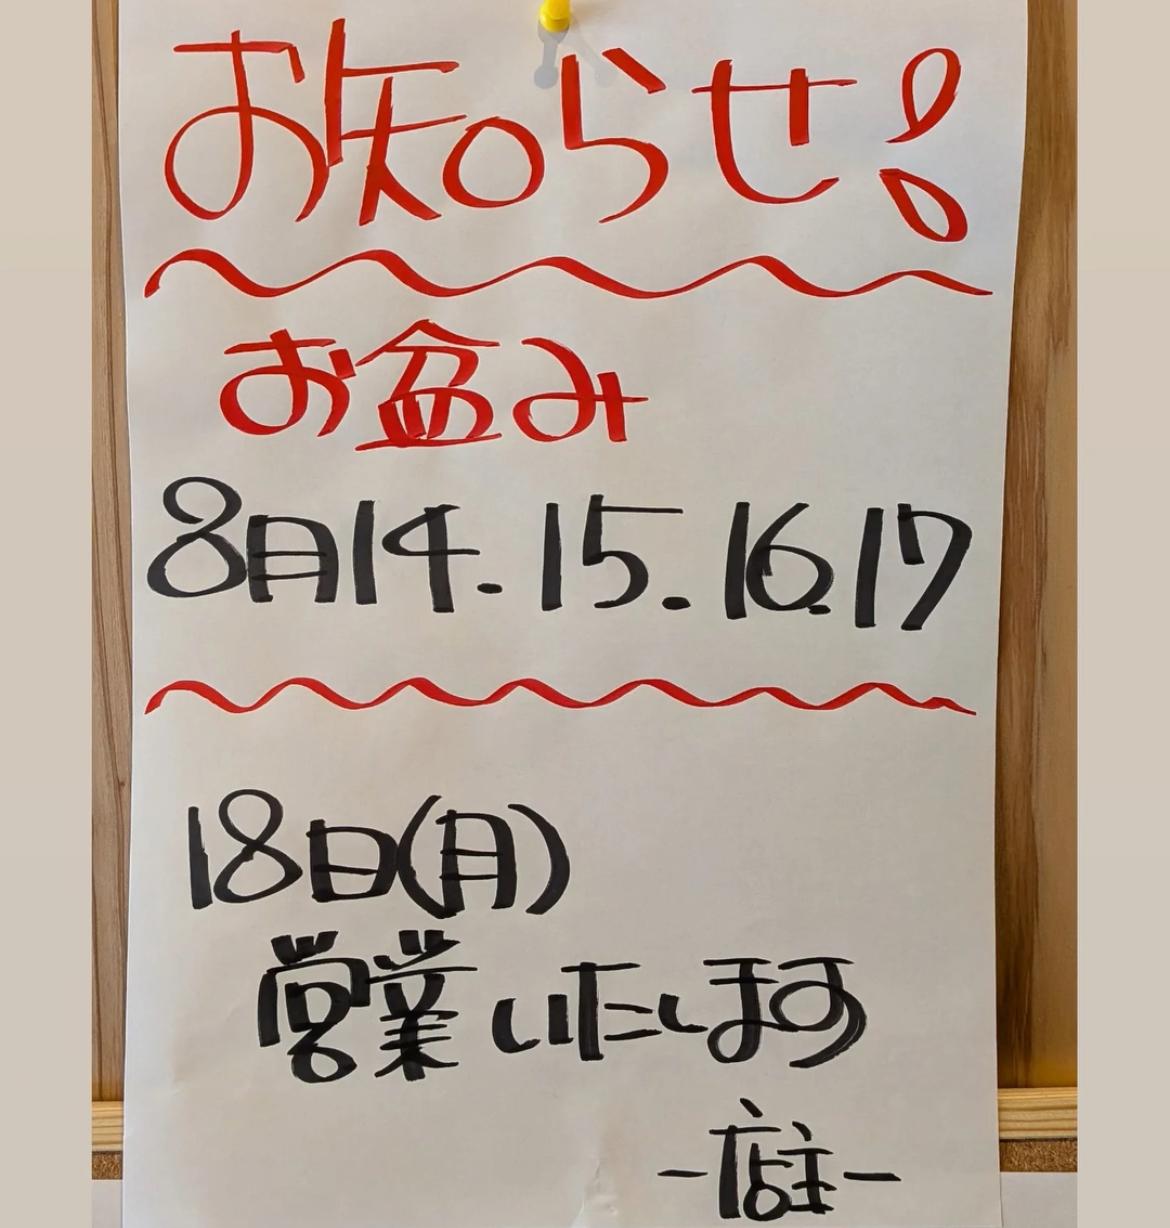 お知らせ!
お盆み
8月14.15.16.17
18日(月)
営業いたします
-店主-